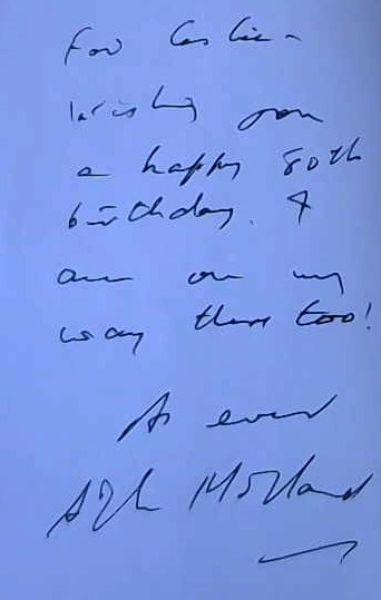 For Leslie -
wishing you
a happy 80th
birthday. I
am on my
way there too!
As ever
Holland